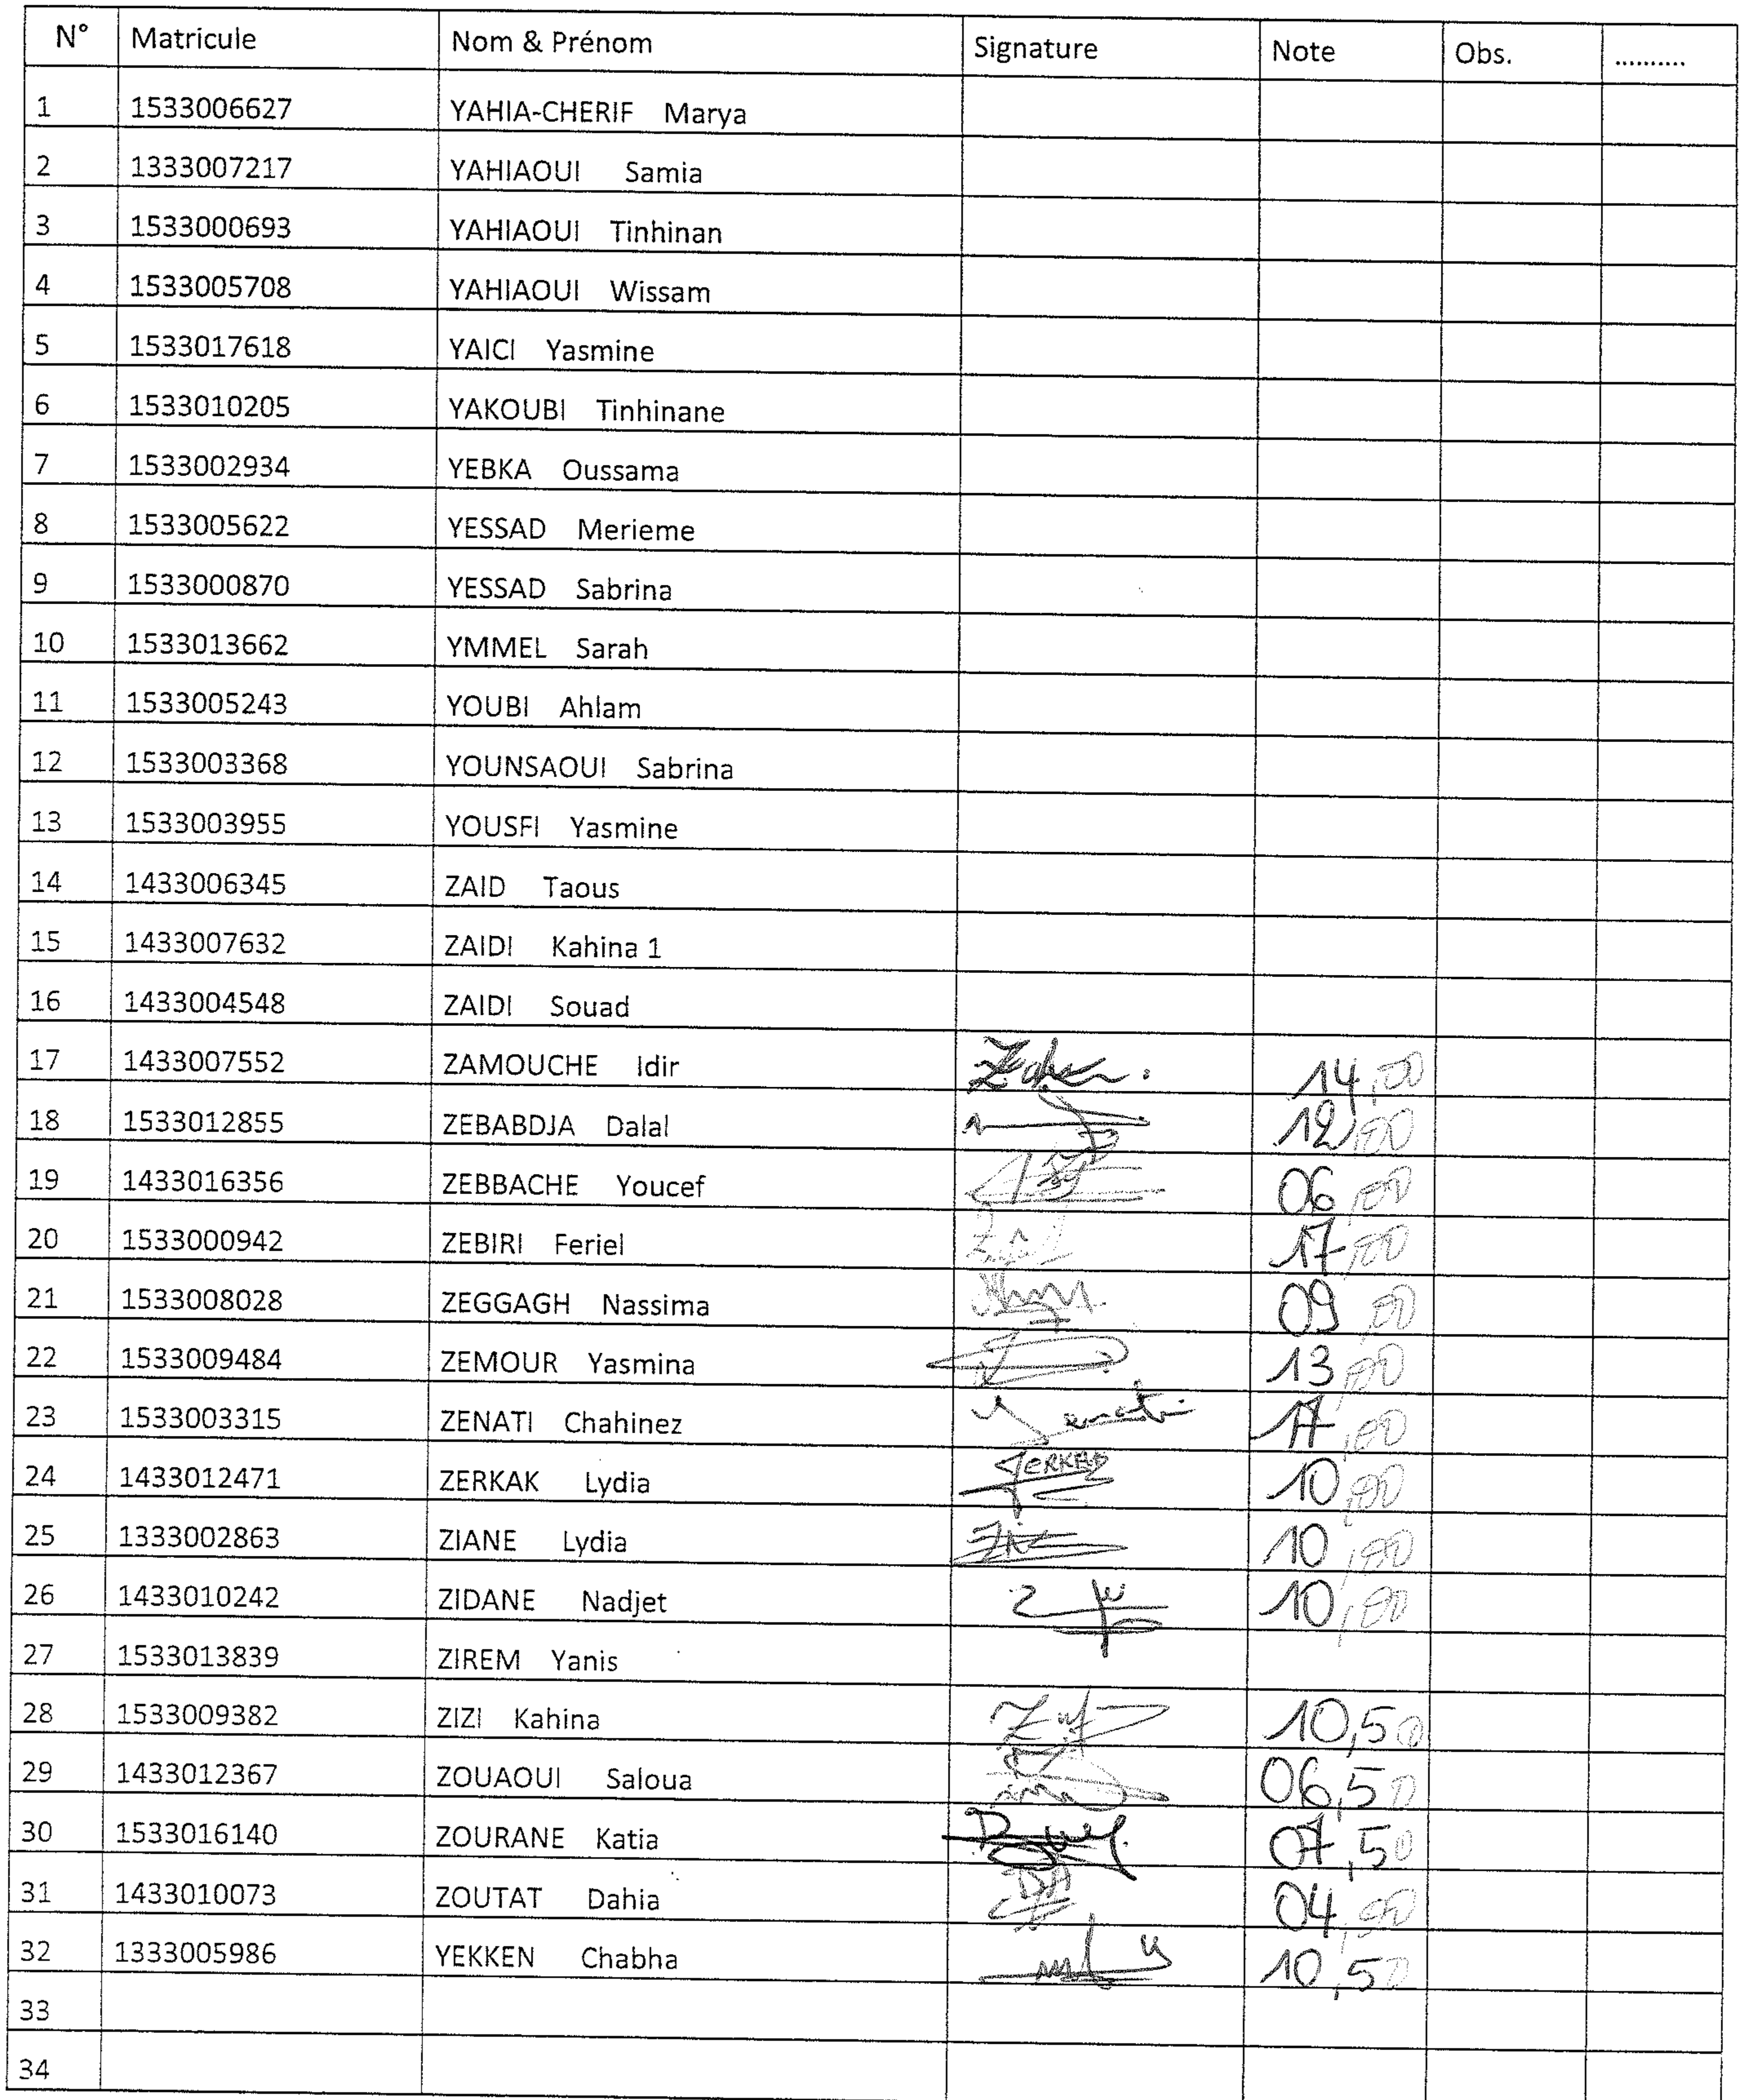 N° Matricule Nom & Prénom Signature Note Obs. ..........
1 1533006627 YAHIA-CHERIF Marya
2 1333007217 YAHIAOUI Samia
3 1533000693 YAHIAOUI Tinhinan
4 1533005708 YAHIAOUI Wissam
5 1533017618 YAICI Yasmine
6 1533010205 YAKOUBI Tinhinane
7 1533002934 YEBKA Oussama
8 1533005622 YESSAD Merieme
9 1533000870 YESSAD Sabrina
10 1533013662 YMMEL Sarah
11 1533005243 YOUBI Ahlam
12 1533003368 YOUNSAOUI Sabrina
13 1533003955 YOUSFI Yasmine
14 1433006345 ZAID Taous
15 1433007632 ZAIDI Kahina 1
16 1433004548 ZAIDI Souad
17 1433007552 ZAMOUCHE Idir 14,00
18 1533012855 ZEBABDJA Dalal 12,00
19 1433016356 ZEBBACHE Youcef 06,00
20 1533000942 ZEBIRI Feriel 17,00
21 1533008028 ZEGGAGH Nassima 09,00
22 1533009484 ZEMOUR Yasmina 13,00
23 1533003315 ZENATI Chahinez 17,00
24 1433012471 ZERKAK Lydia 10,00
25 1333002863 ZIANE Lydia 10,00
26 1433010242 ZIDANE Nadjet 10,00
27 1533013839 ZIREM Yanis
28 1533009382 ZIZI Kahina 10,50
29 1433012367 ZOUAOUI Saloua 06,50
30 1533016140 ZOURANE Katia 07,50
31 1433010073 ZOUTAT Dahia
32 1333005986 YEKKEN Chabha 10,50
33
34